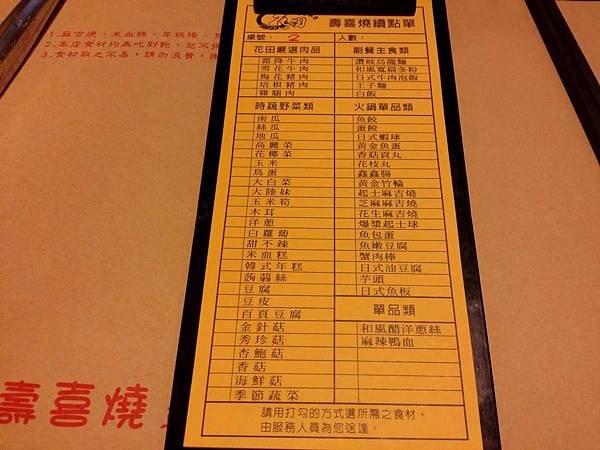 1.麻吉燒、米血糕、年糕條、
2.本店食材均為吃到飽，恕不
3.食材取之不易，請勿浪費，謝
壽喜燒續點單
桌號： 2 人數：
花田嚴選肉品
霜降牛肉
雪花牛肉
梅花豬肉
培根豬肉
雞腿肉
副餐主食類
讚岐烏龍麵
和風寬扁冬粉
日式牛肉泡飯
王子麵
白飯
時蔬野菜類
南瓜
絲瓜
地瓜
高麗菜
花椰菜
玉米
鳥蛋
大白菜
大陸妹
玉米筍
木耳
洋蔥
白蘿蔔
甜不辣
米血糕
韓式年糕
蒟蒻絲
豆腐
豆皮
百頁豆腐
金針菇
秀珍菇
杏鮑菇
香菇
海鮮菇
季節蔬菜
火鍋單品類
魚餃
蛋餃
日式蝦球
黃金魚蛋
香菇貢丸
花枝丸
鑫鑫腸
黃金竹輪
起士麻吉燒
芝麻麻吉燒
花生麻吉燒
爆漿起士球
魚包蛋
魚嫩豆腐
蟹肉棒
日式油豆腐
芋頭
日式魚板
單品類
和風醋洋蔥絲
麻辣鴨血
請用打勾的方式選所需之食材，
由服務人員為您送達。
壽喜燒